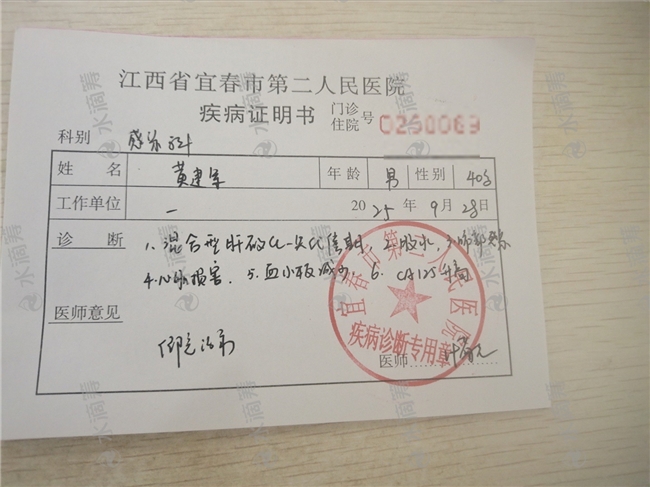 江西省宜春市第二人民医院
疾病证明书 门诊住院号 0250069
科别 感染科
姓名 黄建军 年龄 男 性别 40岁
工作单位 一 2025年9月28日
诊断 1.混合型肝硬化-失代偿期, 2.腹水, 3.肺部感染
4.心脏损害. 5.血小板减少, 6. CA125升高
医师意见
住院治疗
医师
宜春市第二人民医院
疾病诊断专用章
水滴筹